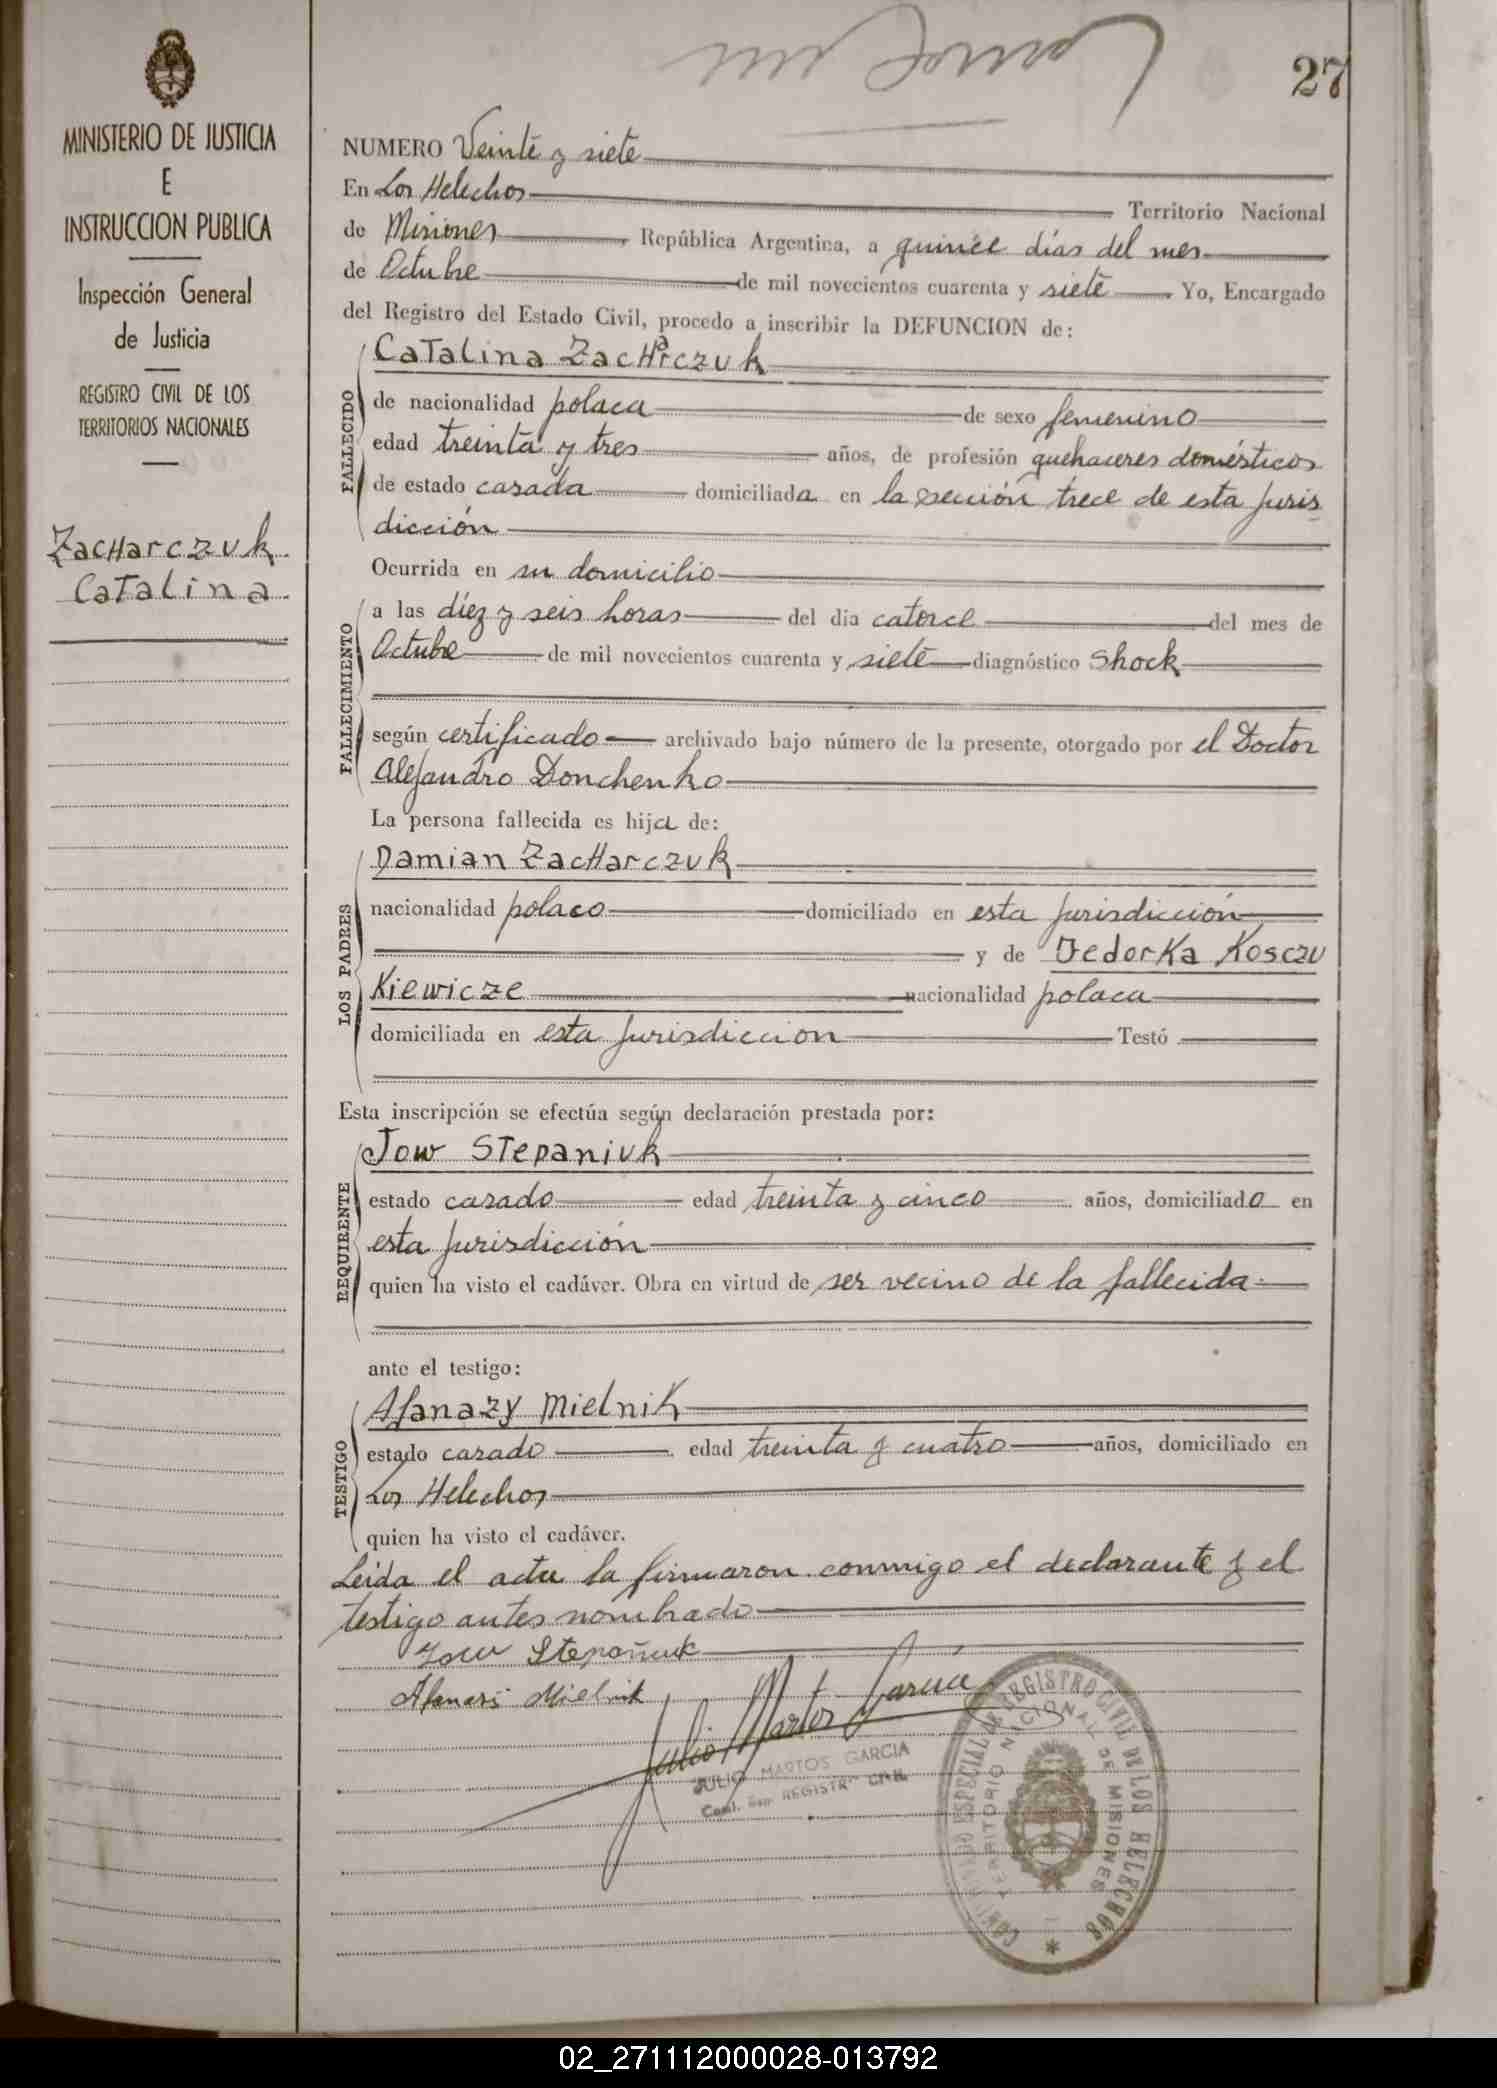 27
MINISTERIO DE JUSTICIA
E
INSTRUCCION PUBLICA
Inspección General
de Justicia
REGISTRO CIVIL DE LOS
TERRITORIOS NACIONALES
ZacHarczuk
Catalina
NUMERO Veinte y siete
En Los Helechos Territorio Nacional
de Misiones República Argentina, a quince días del mes
de Octubre de mil novecientos cuarenta y siete Yo, Encargado
del Registro del Estado Civil, procedo a inscribir la DEFUNCION de:
Catalina ZacHarczuk
FALLECIDO
de nacionalidad polaca de sexo femenino
edad treinta y tres años, de profesión quehaceres domésticos
de estado casada domiciliada en la sección trece de esta juris
dicción
Ocurrida en su domicilio
FALLECIMIENTO
a las diez y seis horas del dia catorce del mes de
Octubre de mil novecientos cuarenta y siete diagnóstico Shock
según certificado archivado bajo número de la presente, otorgado por el Doctor
Alejandro Donchenko
La persona fallecida es hija de:
LOS PADRES
Damian ZacHarczuk
nacionalidad polaco domiciliado en esta jurisdicción
y de Fedorka Kosczu
Kiewicze nacionalidad polaca
domiciliada en esta jurisdiccion Testó
Esta inscripción se efectúa según declaración prestada por:
REQUIRENTE
Jow Stepaniuk
estado casado edad treinta y cinco años, domiciliado en
esta jurisdicción
quien ha visto el cadáver. Obra en virtud de ser vecino de la fallecida.
ante el testigo:
TESTIGO
Afanazy Mielnik
estado casado edad treinta y cuatro años, domiciliado en
Los Helechos
quien ha visto el cadáver.
Leida el acta la firmaron conmigo el declarante y el
testigo antes nombrado
Jow Stepaniuk
Afanazi Mielnik
Julio Martos García
JULIO MARTOS GARCIA
REGISTRO CIVIL
ESPECIAL DE REGISTRO CIVIL DE LOS HELECHOS
TERRITORIO NACIONAL DE MISIONES
02_271112000028-013792